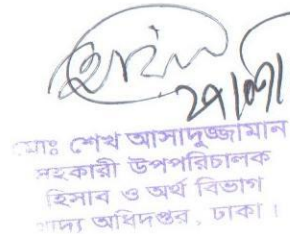 মোঃ শেখ আসাদুজ্জামান
সহকারী উপপরিচালক
হিসাব ও অর্থ বিভাগ
খাদ্য অধিদপ্তর, ঢাকা।